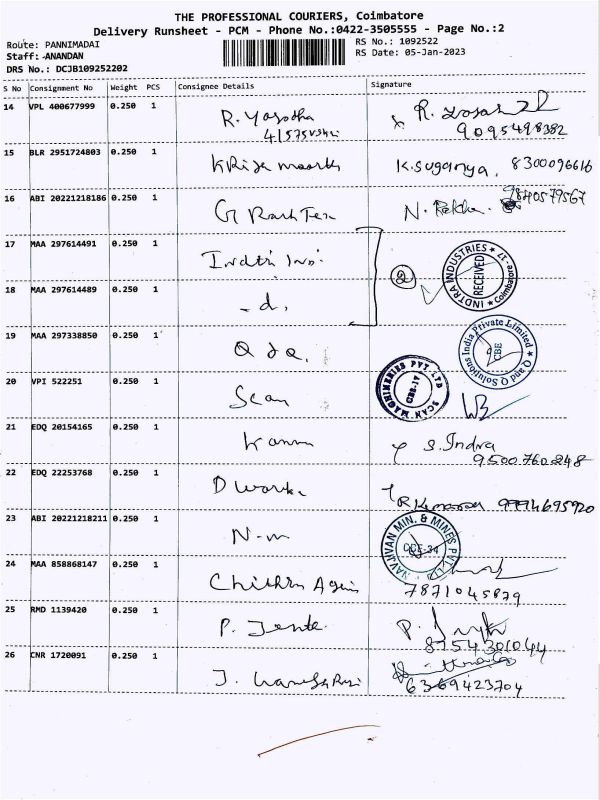 THE PROFESSIONAL COURIERS, Coimbatore
Delivery Runsheet - PCM - Phone No.:0422-3505555 - Page No.:2
Route: PANNIMADAI
RS No.: 1092522
Staff: ANANDAN
RS Date: 05-Jan-2023
DRS No.: DCJB109252202
S No Consignment No Weight PCS Consignee Details Signature
14 VPL 400677999 0.250 1
9095498382
15 BLR 2951724803 0.250 1 K.Suganya, 8300096616
16 ABI 20221218186 0.250 1 N. 9840579567
17 MAA 297614491 0.250 1
2
INDTRA INDUSTRIES * Coimbatore-17 * RECEIVED
18 MAA 297614489 0.250 1 - d.
19 MAA 297338850 0.250 1
Q and Q Solutions India Private Limited * CBE
20 VPI 522251 0.250 1 Scan
SCAN MACHINERIES PVT. LTD CBE-17
21 EDQ 20154165 0.250 1 S. Indra
9500760248
22 EDQ 22253768 0.250 1
23 ABI 20221218211 0.250 1 N-m
NAVJIVAN MIN. & MINES PVT. LTD
24 MAA 858868147 0.250 1
7871045879
25 RMD 1139420 0.250 1 P.
8754301044
26 CNR 1720091 0.250 1
6369423704